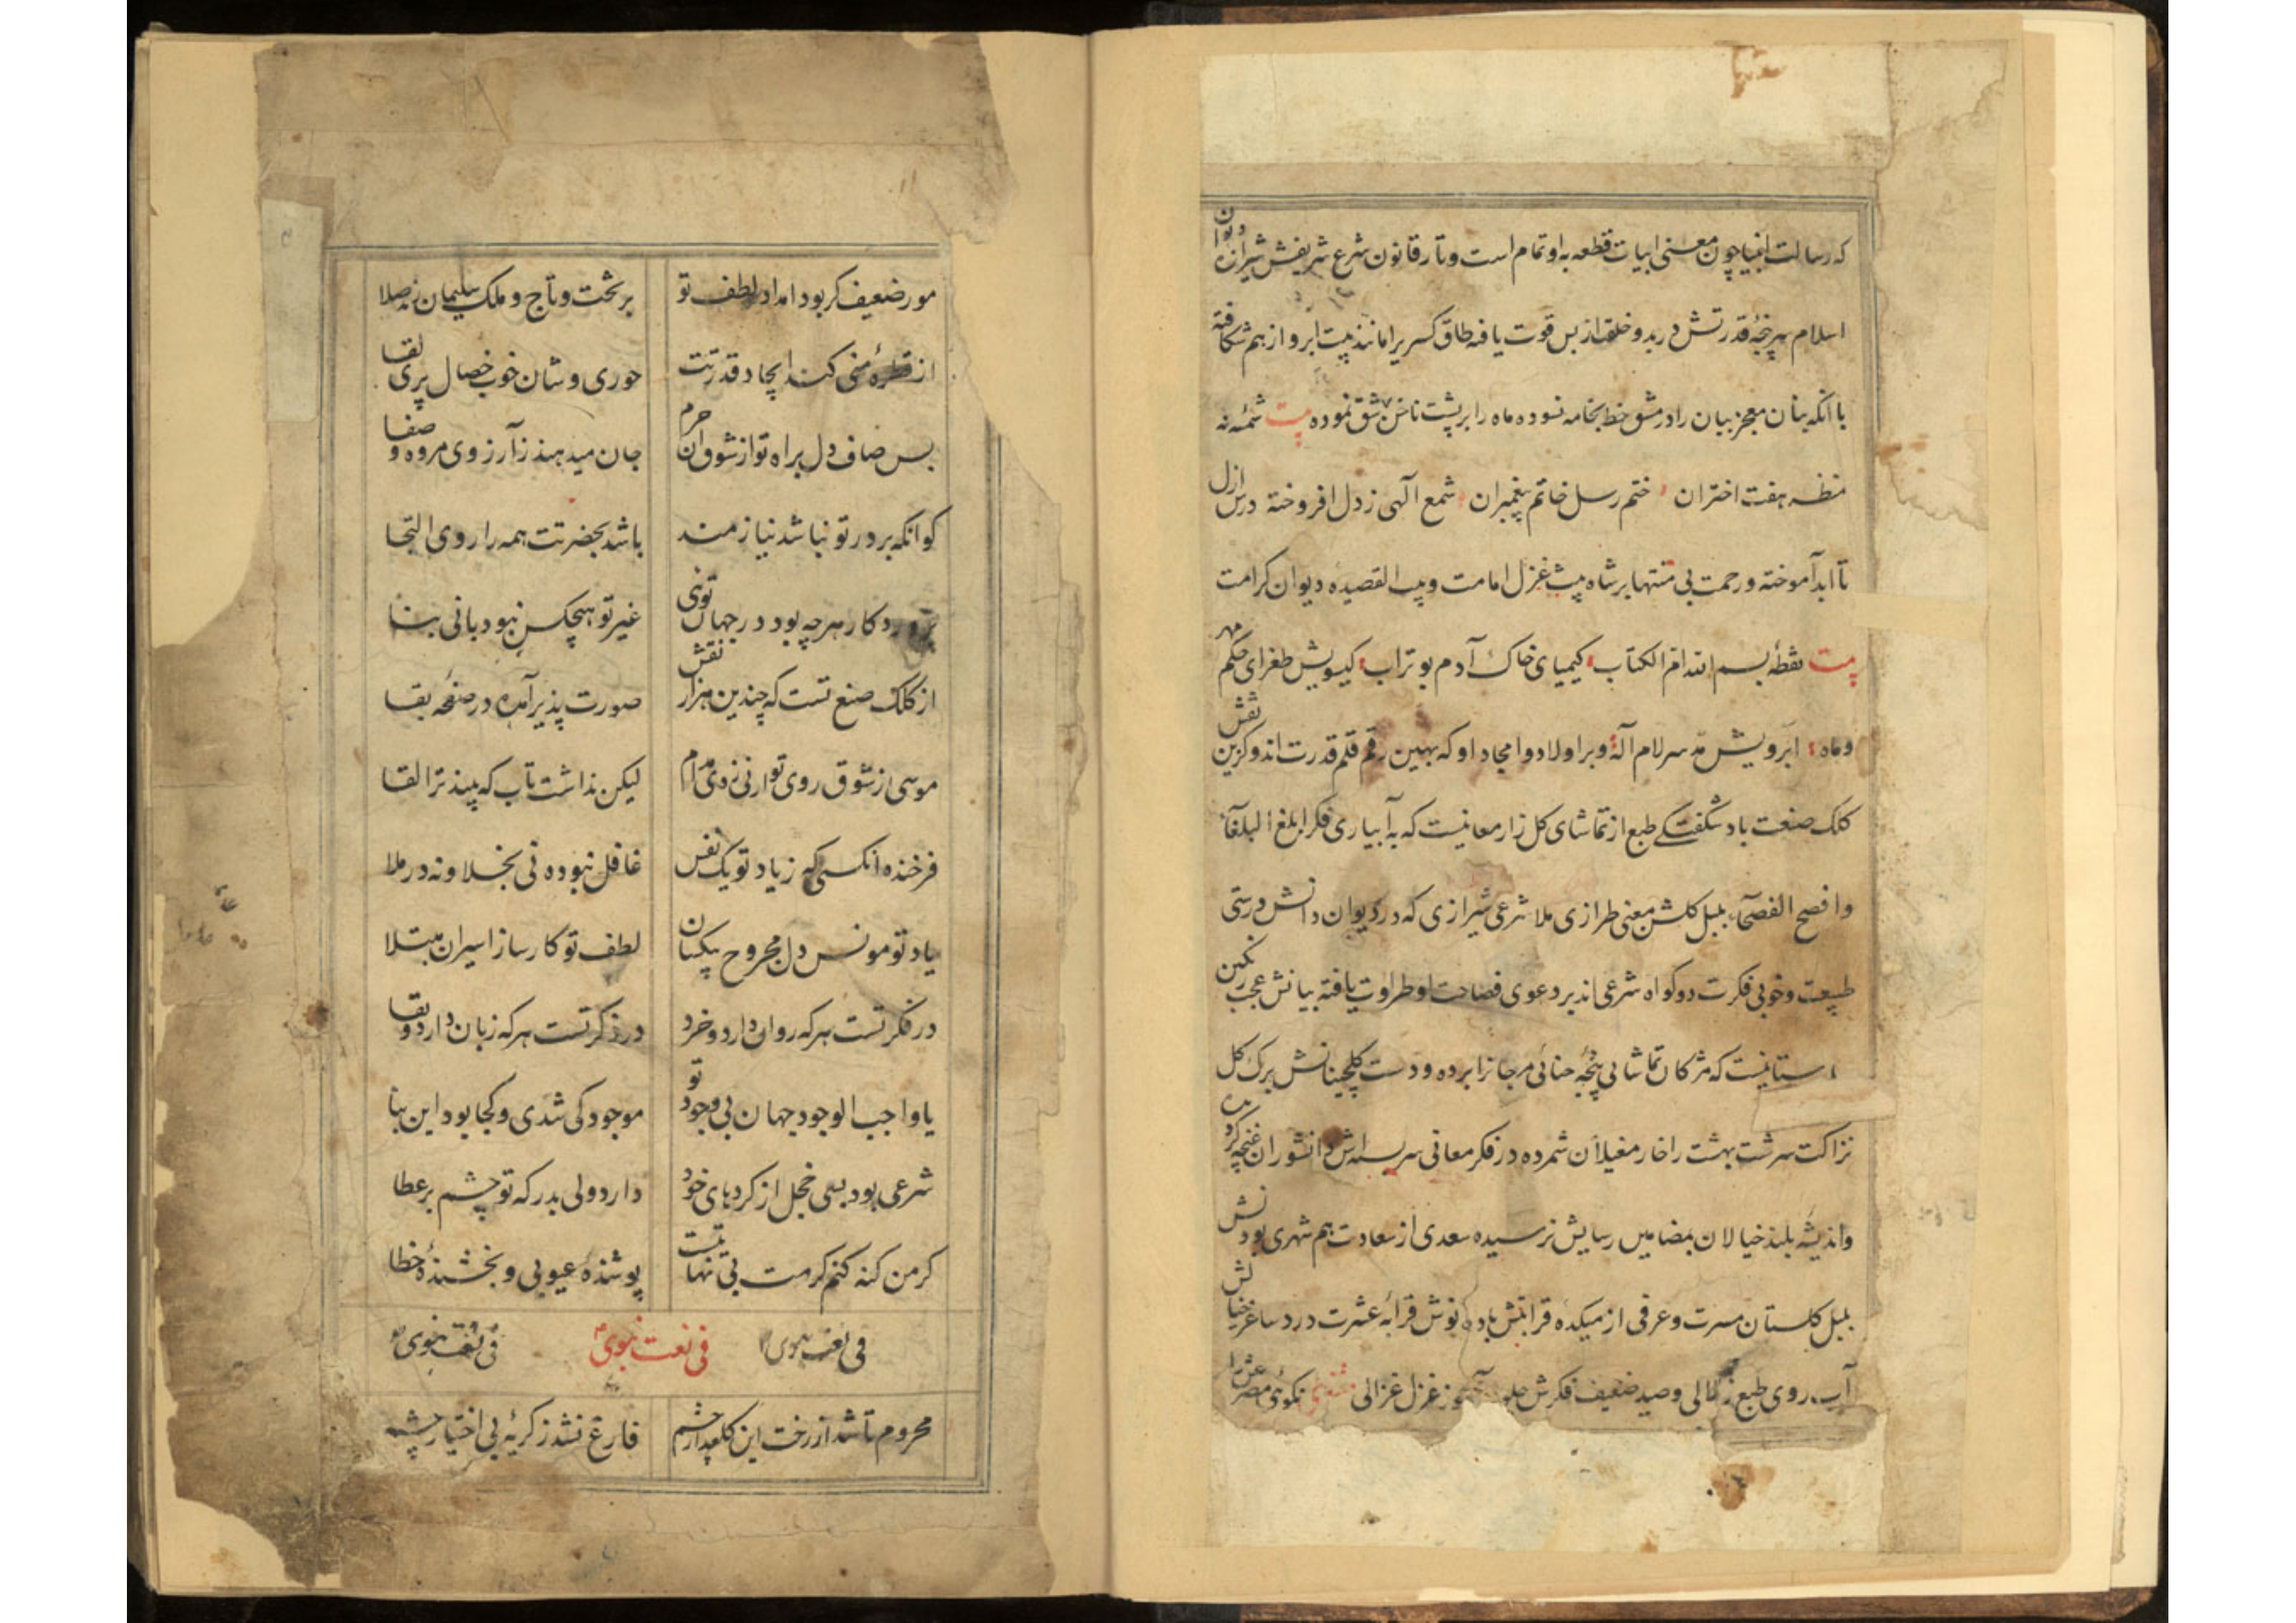 که رسالت انبیا چون معنی ابیات قطعه به او تمام است و تار قانون شرع شریفش شیرازه دیوان
اسلام سرپنجهٔ قدرتش در ید و خلق از بس قوت یافته طاق کسری را مانند بیت ابرو از هم شکافته
با آنکه بنان معجز بیان را در مشق خط بخامه نسوده ماه را بر پشت ناخن شق نموده بیت شمسهٔ نه
منظر هفت اختران ختم رسل خاتم پیغمبران شمع الهی ز دل افروخته درس ازل
تا ابد آموخته و رحمت بی منتها بر شاه بیت غزل امامت و بیت القصیده دیوان کرامت
بیت نقطهٔ بسم الله ام الکتاب کیمیای خاک آدم بوتراب کیسویش طغرای حکم مهر
و ماه ابرویش مد سر لام آله و بر اولاد و امجاد او که بهین رقم قلم قدرت اند و کزین نقش
کلک صنعت باد شکفتگی طبع از تماشای کل زار معانیست که به آبیاری فکر ابلغ البلغا
وافصح الفصحا بلبل کلشن معنی طرازی ملا شرعی شیرازی که در دیوان دانش درستی
طبیعت و خوبی فکرت دو کواه شرعی اند بر دعوی فصاحت او طراوت یافته بیانش عجب رنکین
استانیست که مژکان تماشایی پنجهٔ حنائی مرجانرا برده و دست کلچینانش برک کل
نزاکت سرشت بهشت را خار مغیلان شمرده در فکر معانی سربسته اش دانشوران غنچه کرد
واندیشه بلند خیالان بمضامین رسایش نرسیده سعدی از سعادت هم شهری بودنش
بلبل کلستان مسرت و عرفی از میکده قرابتش باده نوش قرابهٔ عشرت درد ساغر خیالش
آب روی طبع زلالی و صید ضعیف فکرش غزل غزالی مثنوی نکوئی مصر
مور ضعیف کر بود امداد لطف تو بر تخت و تاج و ملک سلیمان زند صلا
از قطرهٔ منی کند ایجاد قدرتت حوری وشان خوب خصال پری لقا
بس صاف دل براه تو از شوق ان حرم جان میدهند ز آرزوی مروه و صفا
کو انکه بر در تو نباشد نیازمند باشد بحضرتت همه را روی التجا
پروردکار هرچه بود در جهان توئی غیر تو هیچکس نبود بانی بنا
از کلک صنع تست که چندین هزار نقش صورت پذیر آمده در صفحه بقا
موسی از شوق روی تو ارنی زدی مدام لیکن نداشت تاب که بیند ترا لقا
فرخنده انکسی که ز یاد تو یک نفس غافل نبوده نی بخلا و نه در ملا
یاد تو مونس دل مجروح بیکسان لطف تو کار ساز اسیران مبتلا
در فکر تست هر که روان دارد و خرد در ذکر تست هر که زبان دارد و بقا
یا واجب الوجود جهان بی وجود تو موجود کی شدی و کجا بود این بنا
شرعی بود بسی خجل از کردهای خود دارد ولی بدرکه تو چشم بر عطا
کر من کنه کنم کرمت بی نهایتست پوشندهٔ عیوبی و بخشندهٔ خطا
فی نعت نبوی فی نعت نبوی فی نعت نبوی
محروم تا شد از رخت این کلعذار چشم فارغ نشد ز کریهٔ بی اختیار چشم